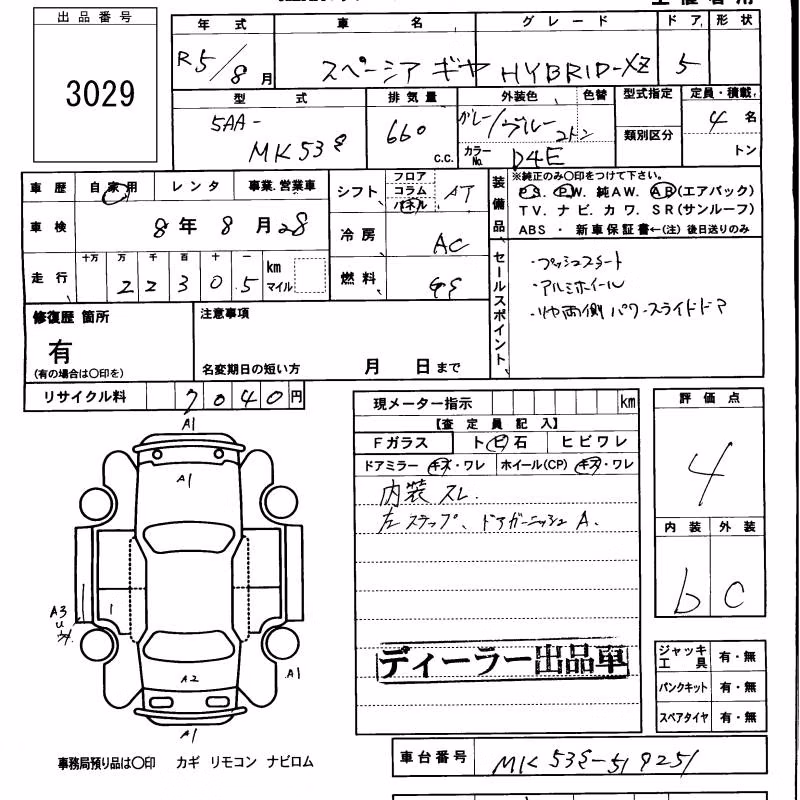 出品番号
3029
年式 車名 グレード ドア 形状
R5/8月 スペーシア ギヤ HYBRID-XZ 5
型式 排気量 外装色 色替 型式指定 定員・積載
5AA-MK53S 660 c.c. グレー/ブルー 2トン 4名
カラーNo. D4E 類別区分 トン
車歴 自家用 レンタ 事業.営業車
シフト フロア コラム パネル AT
装備品 ※純正のみ〇印をつけて下さい。
PS. PW. 純AW. AB(エアバック)
TV. ナビ. カワ. SR(サンルーフ)
ABS ・ 新車保証書←(注) 後日送りのみ
車検 8年 8月 28
冷房 AC
走行 十万 万 千 百 十 一 km マイル
2 2 3 0 5
燃料 ガソ
セールスポイント
・プッシュスタート
・アルミホイール
・リヤ両側パワースライドドア
修復歴 箇所
有
(有の場合は〇印を)
注意事項
名変期日の短い方 月 日まで
リサイクル料 7040円
現メーター指示 km
【査定員記入】
Fガラス トビ石 ヒビワレ
ドアミラー キズ・ワレ ホイール(CP) キズ・ワレ
内装 スレ.
左ステップ、ドアガーニッシュ A.
ディーラー出品車
評価点
4
内装 外装
b C
ジャッキ工具 有・無
パンクキット 有・無
スペアタイヤ 有・無
A1
A1
1
A3
A2
A1
A1
事務局預り品は〇印 カギ リモコン ナビロム
車台番号 MK53S-519251